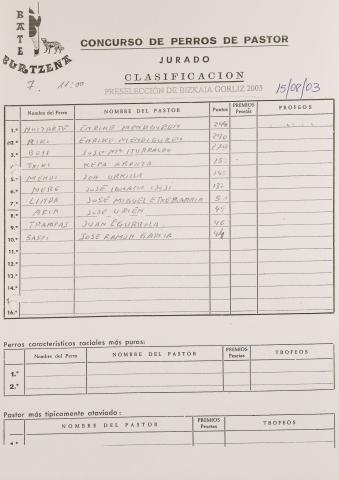 BATE
BURTZENA
CONCURSO DE PERROS DE PASTOR
JURADO
CLASIFICACION
PRESELECCIÓN DE BIZKAIA GORLIZ 2003
7. 11:00
15/08/03
Nombre del Perro NOMBRE DEL PASTOR Puntos PREMIOS Pesetas TROFEOS
1.º ENRIKE MENDIGUREN
2.º RIKI ENRIKE MENDIGUREN
3.º BOSS JOSE Mª ITURRALDE
TXIKI KEPA
5.º MENDI
6.º JOSÉ IGNACIO
7.º LINDA JOSÉ MIGUEL ETXEBARRIA
8.º JOSE URIÉN
9.º TRAMPAS JUAN EGURROLA 46
10.º JOSE RAMON GARCIA 44
11.º
12.º
13.º
14.º
15.º
16.º
Perros característicos raciales más puros:
Nombre del Perro NOMBRE DEL PASTOR PREMIOS Pesetas TROFEOS
1.º
2.º
Pastor más típicamente ataviado:
NOMBRE DEL PASTOR PREMIOS Pesetas TROFEOS
1.º